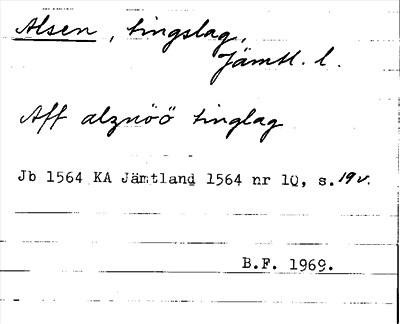 Alsen, tingslag,
Jämtl. l.
Aff alznöö tinglag
Jb 1564 KA Jämtland 1564 nr 10, s. 19 v.
B.F. 1969.